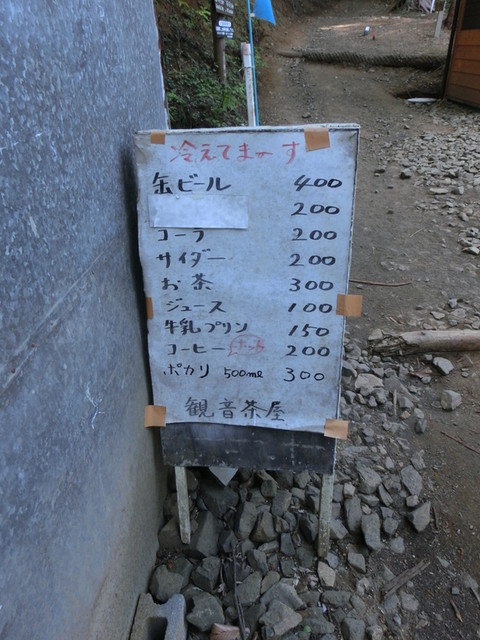 冷えてまーす
缶ビール 400
200
コーラ 200
サイダー 200
お茶 300
ジュース 100
牛乳プリン 150
コーヒー 200
ポカリ 500ml 300
観音茶屋